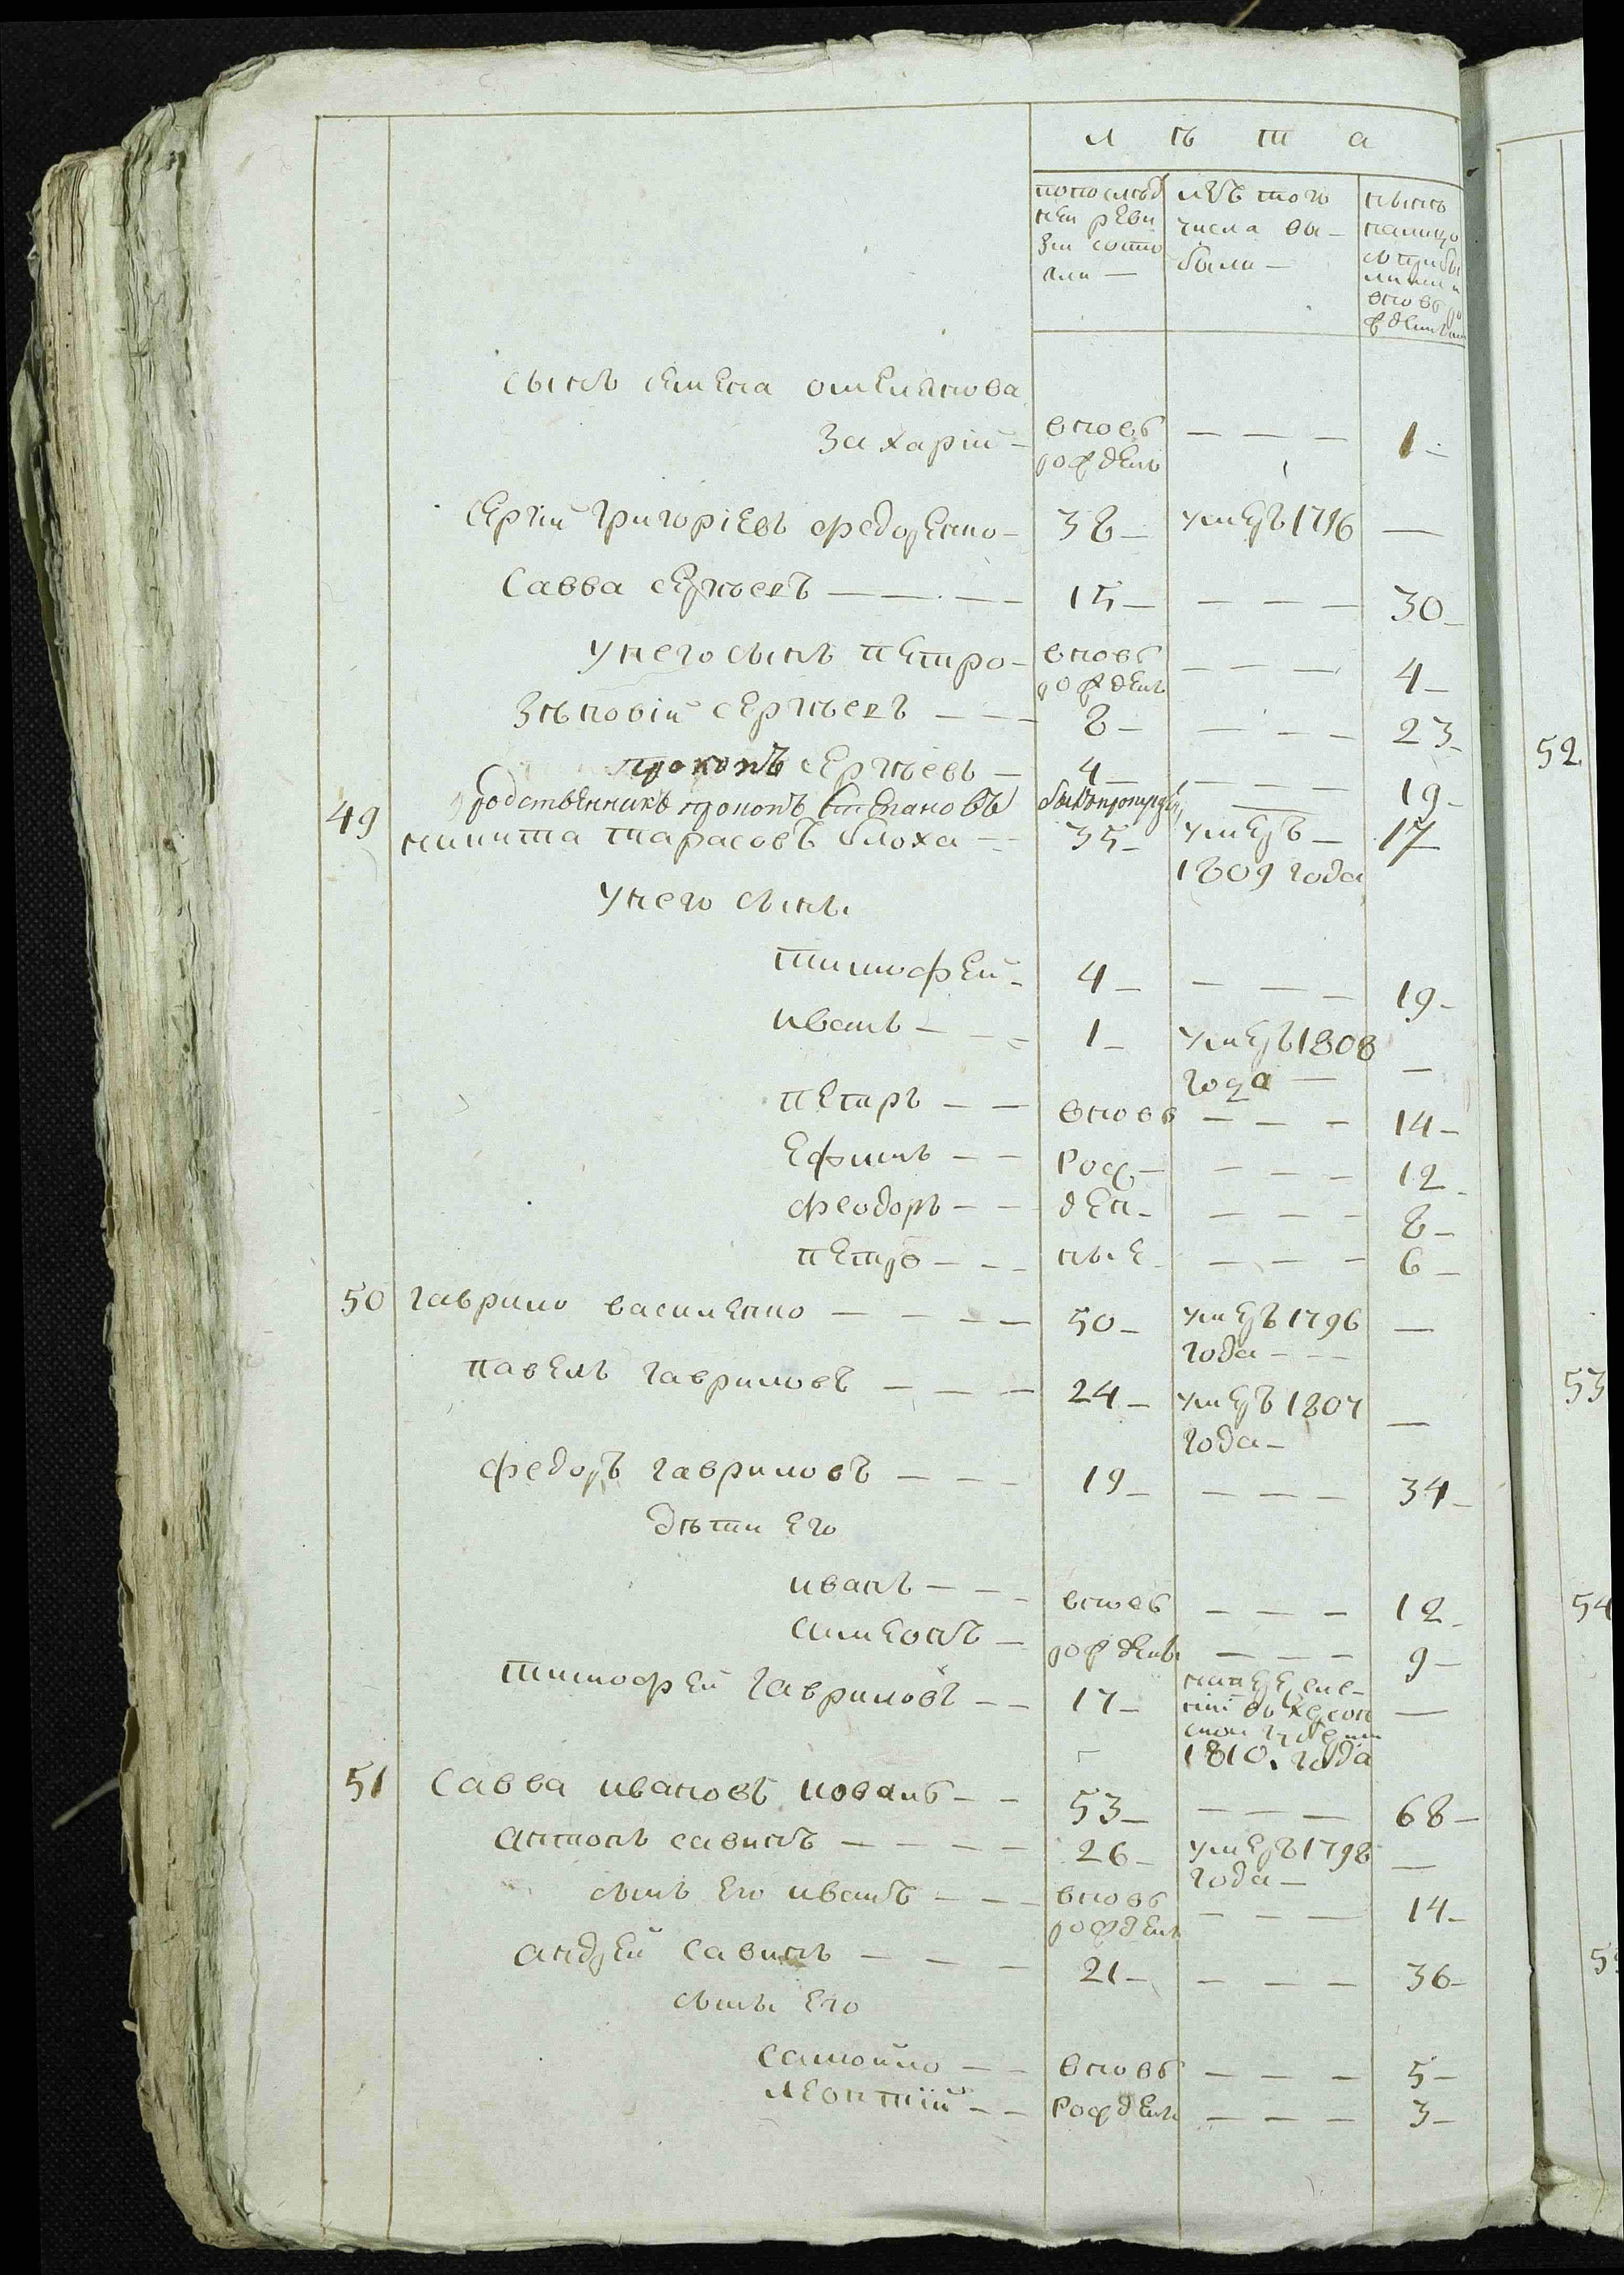 лѣта
попослѣд
ней реви
зіи состо
яли —
изъ того
числа вы-
было —
нынѣ
налицо
сын семена омелянова
Захарій — вновь рожденъ — — — 1 —
Сергій григоріевъ федоренко — 38 — умеръ 1796 —
Савва сергѣевъ — — — 15 — — — — 30 —
у него сынъ петро — вновь рожденъ — — — 4 —
Зѣновій сергѣевъ — — — 8 — — — — 23 —
прокопъ сергѣевъ — 4 — — — — 19 —
родственникъ прокопъ степановъ 17
49 никита тарасовъ блоха — — 35 — умеръ —
1809 года
у него сыны
тимофей — 4 — — — — 19 —
иванъ — — — 1 — умеръ 1808
года — —
петръ — — вновь — — — 14 —
ефимъ — — рож — — — — 12 —
феодоръ — — ден — — — — 8 —
петро — — — ные — — — — 6 —
50 гаврило василенко — — — — 50 — умеръ 1796 —
года — —
павелъ гавриловъ — — — 24 — умеръ 1807 —
года —
федоръ гавриловъ — — — 19 — — — — 34 —
дѣти его
иванъ — — — вновь — — — 12 —
симеонъ — рождены — — — 9 —
тимофей гавриловъ — — 17 —
1810. года
51 Савва ивановъ коваль — — 53 — — — — 68 —
антонъ савинъ — — — — 26 — умеръ 1798 —
года —
сынъ его иванъ — — — вновь рожденъ — — — 14 —
андрей савинъ — — — 21 — — — — 36 —
сыны его
самойло — — вновь — — — 5 —
леонтій — — рождены — — — 3 —
52
53
54